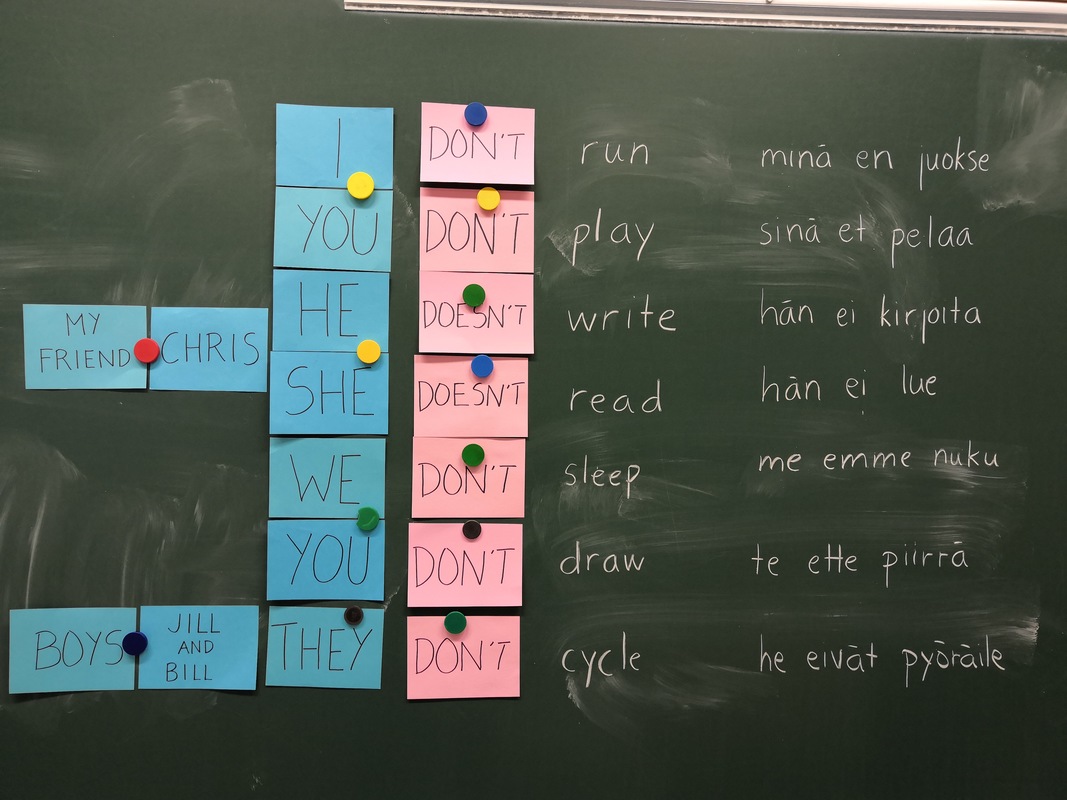 I DON'T run minä en juokse
YOU DON'T play sinä et pelaa
HE DOESN'T write hän ei kirjoita
MY
FRIEND CHRIS
SHE DOESN'T read hän ei lue
WE DON'T sleep me emme nuku
YOU DON'T draw te ette piirrä
BOYS JILL
AND
BILL THEY DON'T cycle he eivät pyöräile